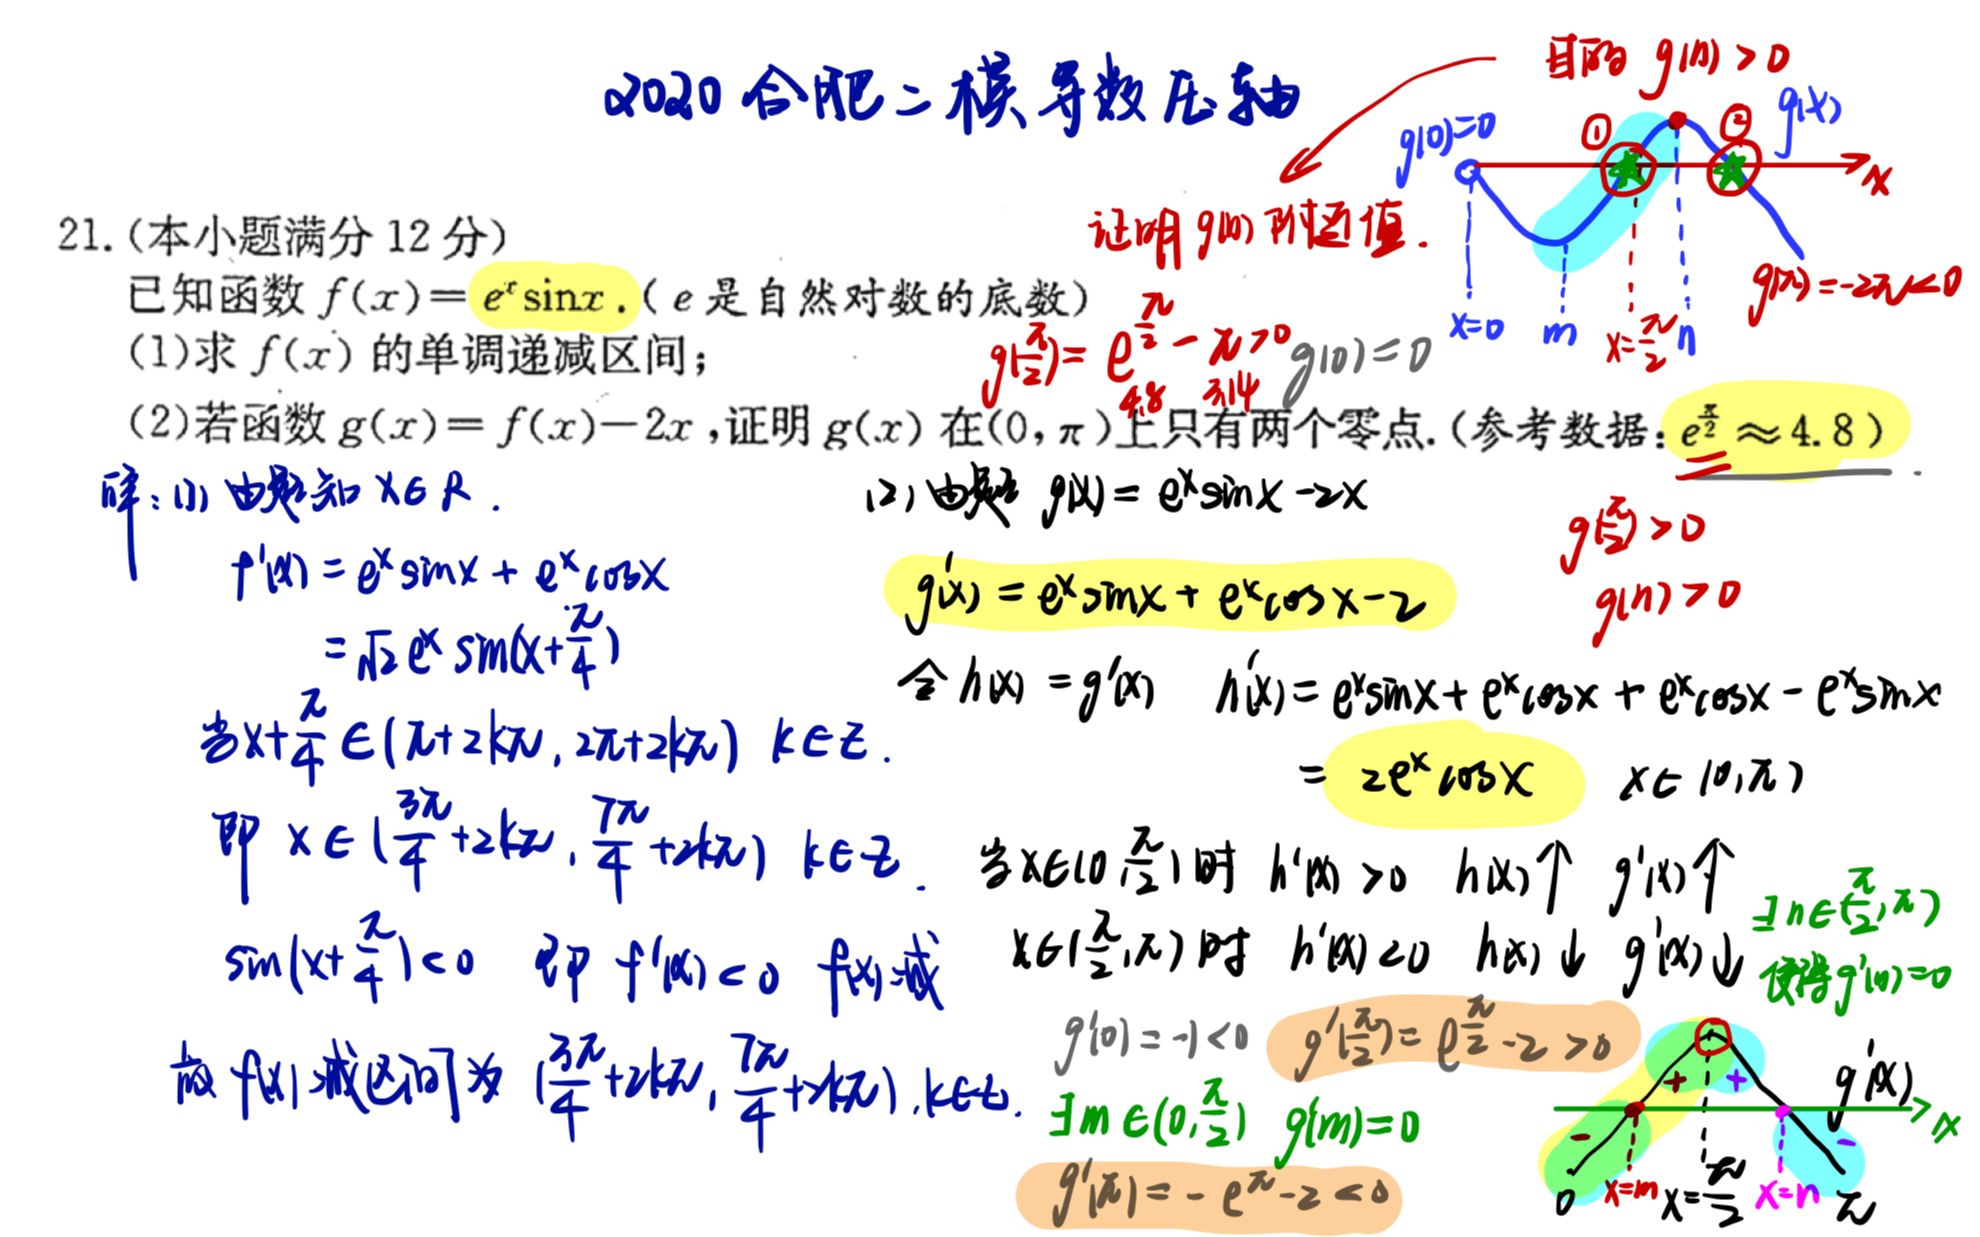 2020 合肥二模导数压轴
目的 g(n)>0
g(0)=0
① ②
g(x)
x
证明 g(n) 附近值.
x=0 m x=π/2 n
g(π)=-2π<0
21.(本小题满分 12 分)
已知函数 f(x)=eˣsinx.(e 是自然对数的底数)
(1)求 f(x) 的单调递减区间;
g(π/2)=e^(π/2)-π>0 g(0)=0
4.8 3.14
(2)若函数 g(x)=f(x)-2x,证明 g(x) 在(0,π)上只有两个零点.(参考数据:e^(π/2)≈4.8)
解:(1) 由题知 x∈R.
f'(x)=eˣsinx+eˣcosx
=√2eˣsin(x+π/4)
当x+π/4∈(π+2kπ,2π+2kπ) k∈Z.
即 x∈(3π/4+2kπ,7π/4+2kπ) k∈Z.
sin(x+π/4)<0 即 f'(x)<0 f(x)减
故 f(x)减区间为 (3π/4+2kπ,7π/4+2kπ),k∈Z.
(2) 由题 g(x)=eˣsinx-2x
g'(x)=eˣsinx+eˣcosx-2
g(π/2)>0
g(n)>0
令 h(x)=g'(x) h'(x)=eˣsinx+eˣcosx+eˣcosx-eˣsinx
=2eˣcosx x∈(0,π)
当x∈(0,π/2)时 h'(x)>0 h(x)↑ g'(x)↑
x∈(π/2,π)时 h'(x)<0 h(x)↓ g'(x)↓
∃n∈(π/2,π)
使得g'(n)=0
g'(0)=-1<0 g'(π/2)=e^(π/2)-2>0
∃m∈(0,π/2) g'(m)=0
g'(π)=-e^π-2<0
+ +
- -
g'(x)
x
0 x=m x=π/2 x=n π